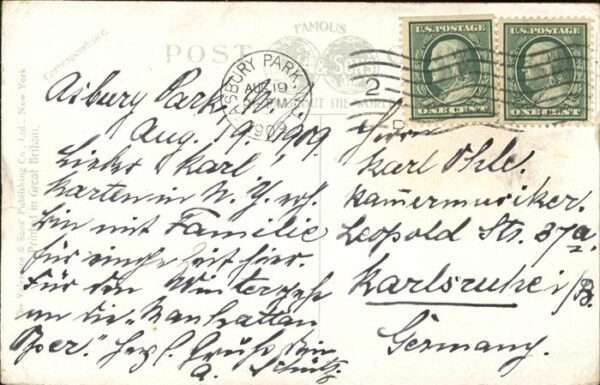 Correspondence.
POST
FAMOUS
THROUGHOUT THE WORLD
ASBURY PARK, N.J.
AUG 19
1909
2
U.S. POSTAGE
ONE CENT
U.S. POSTAGE
ONE CENT
& Sons' Publishing Co., Ltd., New York
Printed in Great Britain.
Asbury Park, N. J.
Aug. 19. 1909.
Lieber Karl,
Karten in N. Y. erh.
Bin mit Familie
für einige Zeit hier.
Für den Winter gehe
an die „Manhattan
Oper." Herzl. Gruß Dein
A.
Herrn
Karl Ohle.
Kammermusiker.
Leopold Str. 37a.
Karlsruhe i/B.
Germany.